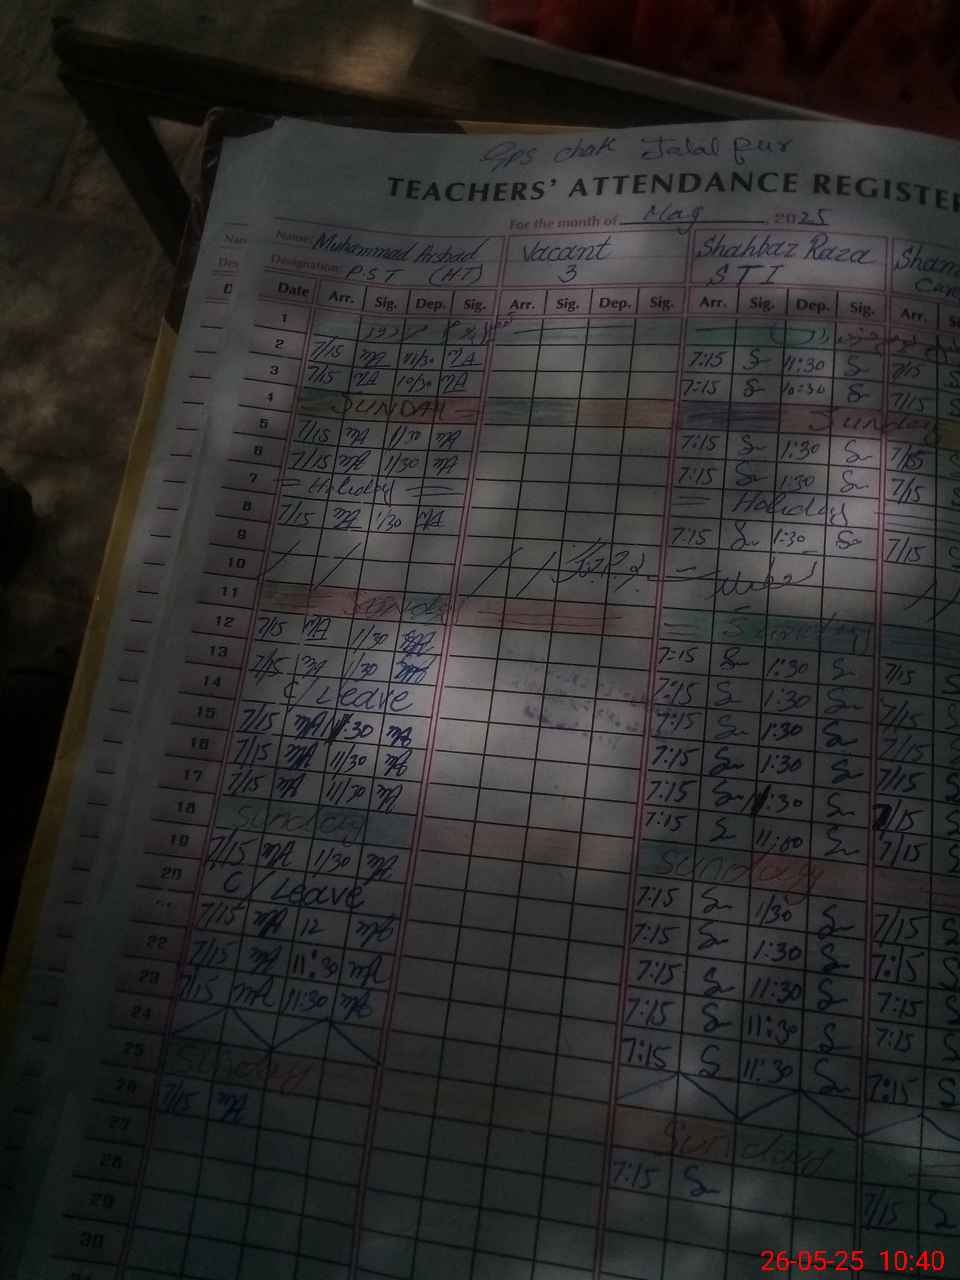 Gps chak Jalal pur
TEACHERS' ATTENDANCE REGISTER
For the month of May 2025
Name: Muhammad Arshad Vacant Shahbaz Raza Sham
Designation: P.S.T (H.T) 3 S T I
Date Arr. Sig. Dep. Sig. Arr. Sig. Dep. Sig. Arr. Sig. Dep. Sig. Arr.
1
2 7/15 MA 11/30 MA 7:15 S 11:30 S 7/15 S
3 7/15 MA 10/30 MA 7:15 S 10:30 S 7/15 S
4 SUNDAY Sunday
5 7/15 MA 1/30 MA 7:15 S 1:30 S 7/15 S
6 7/15 MA 1/30 MA 7:15 S 1:30 S 7/15 S
7 = Holiday = = Holiday
8 7/15 MA 1/30 MA 7:15 S 1:30 S 7/15 S
9
10
11 Sunday Sunday
12 7/15 MA 1/30 MA 7:15 S 1:30 S 7/15 S
13 7/15 MA 1/30 MA 7:15 S 1:30 S 7/15 S
14 C/Leave 7:15 S 1:30 S 7/15 S
15 7/15 MA 11:30 MA 7:15 S 1:30 S 7/15 S
16 7/15 MA 11/30 MA 7:15 S 11:30 S 7/15 S
17 7/15 MA 11/30 MA 7:15 S 11:00 S 7/15 S
18 Sunday Sunday
19 7/15 MA 1/30 MA 7:15 S 1/30 S 7/15 S
20 C/Leave 7:15 S 1:30 S 7:15 S
7/15 MA 12 MA 7:15 S 11:30 S 7:15 S
22 7/15 MA 11:30 MA 7:15 S 11:30 S 7:15 S
23 7/15 MA 11:30 MA 7:15 S 11:30 S 7:15 S
24
25 Sunday Sunday
26 7/15 MA 7:15 S 7/15 S
27
28
29
30
26-05-25 10:40